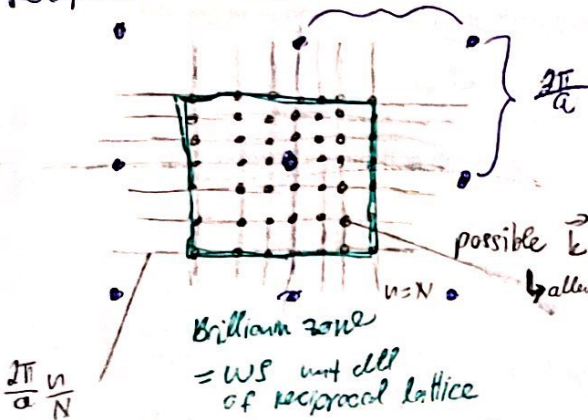 2π/a
possible k⃗
n=N
Brillouin zone
= WS unit cell
of reciprocal lattice
2π/a n/N